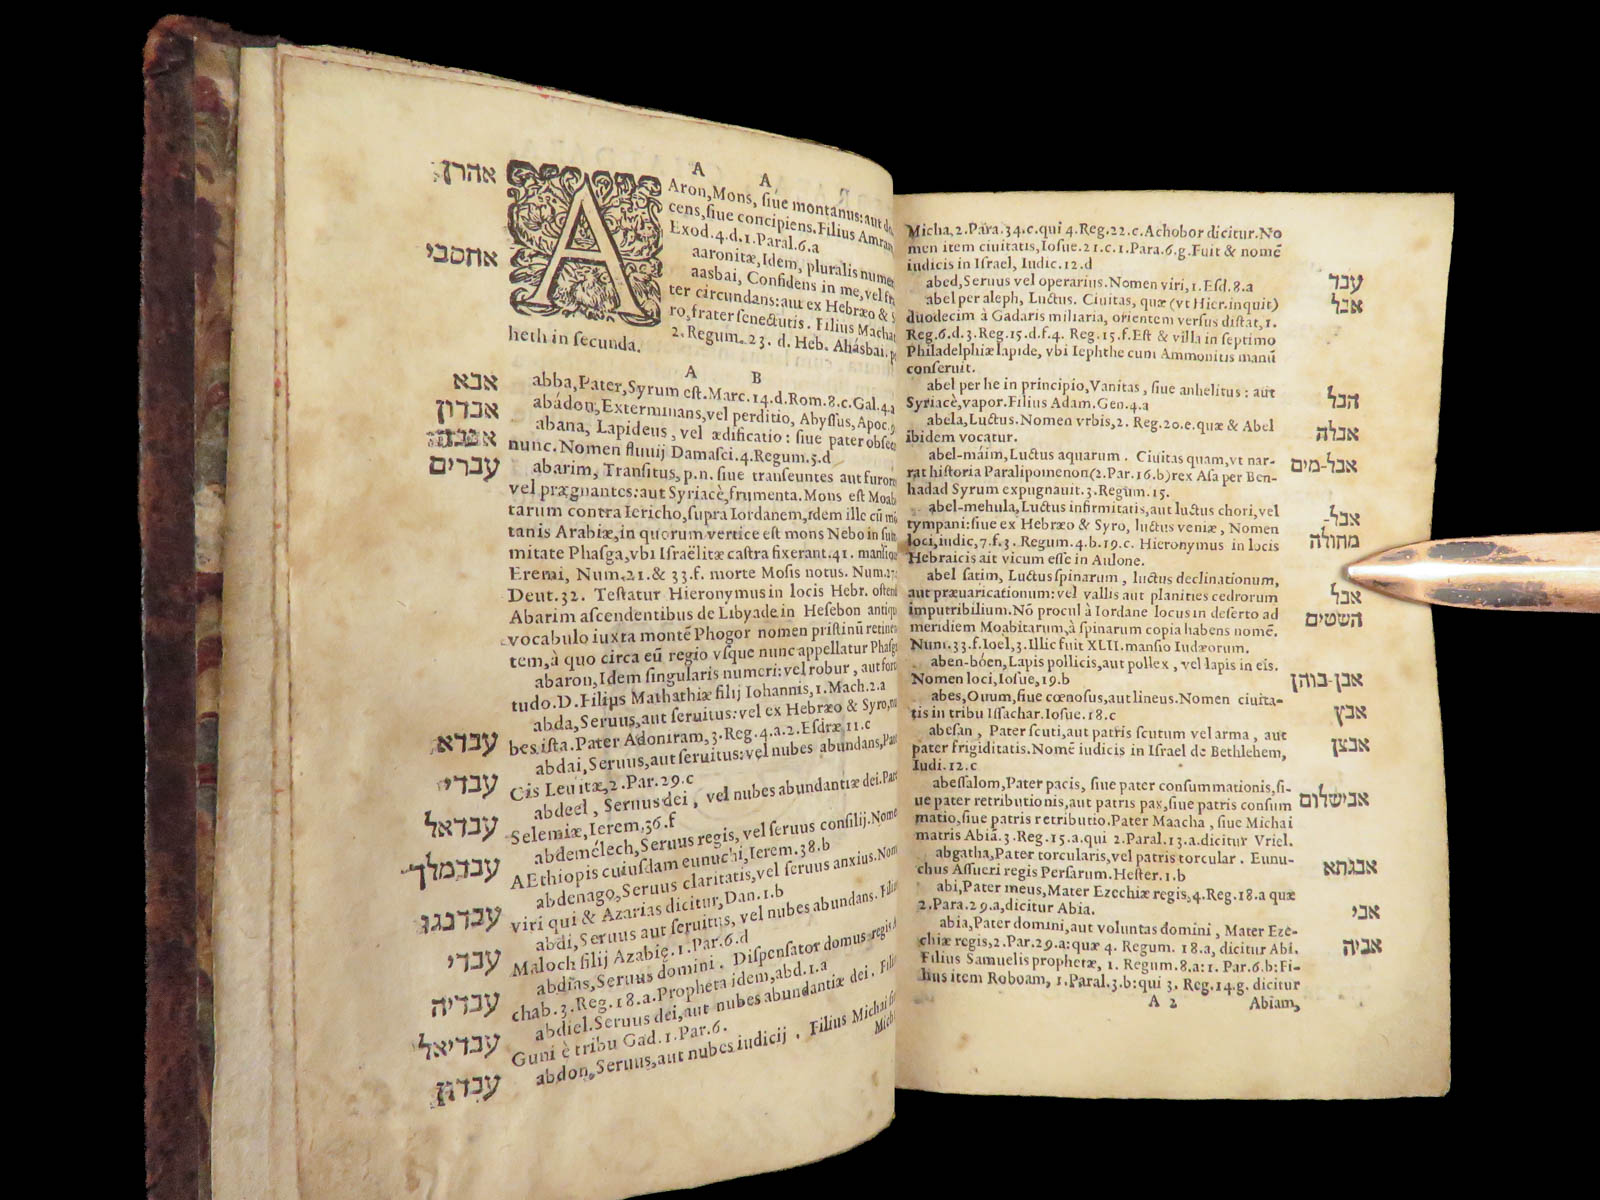 A A
אהרן
Aron, Mons, siue montanus: aut do
cens, siue concipiens. Filius Amram
Exod. 4. d. 1. Paral. 6. a
aaronitæ, Idem, pluralis numer
אחסבי
aasbai, Confidens in me, vel fra
ter circundans: aut ex Hebræo & S
ro, frater senectutis. Filius Machat
2. Regum. 23. d. Heb. Ahásbai. p
heth in secunda.
A B
אבא
abba, Pater, Syrum est. Marc. 14. d. Rom. 8. c. Gal. 4. a
אבדון
abádon, Exterminans, vel perditio, Abyssus, Apoc. 9
אבנה
abana, Lapideus, vel ædificatio: siue pater obsec
nunc. Nomen fluuij Damasci. 4. Regum. 5. d
עברים
abarim, Transitus, p. n. siue transeuntes aut furore
vel prægnantes: aut Syriacè, frumenta. Mons est Moabi
tarum contra Iericho, supra Iordanem, idem ille cū mō
tanis Arabiæ, in quorum vertice est mons Nebo in sum
mitate Phasga, vbi Israëlitæ castra fixerant. 41. mansion
Eremi, Num. 21. & 33. f. morte Mosis notus. Num. 27.
Deut. 32. Testatur Hieronymus in locis Hebr. ostend
Abarim ascendentibus de Libyade in Hesebon antiquo
vocabulo iuxta montē Phogor nomen pristinū retinen
tem, à quo circa eū regio vsque nunc appellatur Phasga
abaron, Idem singularis numeri: vel robur, aut forti
tudo. D. Filius Mathathiæ filij Iohannis, 1. Mach. 2. a
עבדא
abda, Seruus, aut seruitus: vel ex Hebræo & Syro, nu
bes ista. Pater Adoniram, 3. Reg. 4. a. 2. Esdræ 11. c
עבדי
abdai, Seruus, aut seruitus: vel nubes abundans, Pater
Cis Leuitæ, 2. Par. 29. c
עבדאל
abdeel, Seruus dei, vel nubes abundantiæ dei. Pater
Selemiæ, Ierem. 36. f
עבדמלך
abdemélech, Seruus regis, vel seruus consilij. Nomen
AEthiopis cuiusdam eunuchi, Ierem. 38. b
עבדנגו
abdenago, Seruus claritatis, vel seruus anxius. Nomen
viri qui & Azarias dicitur, Dan. 1. b
עבדי
abdi, Seruus aut seruitus, vel nubes abundans. Filius
Maloch filij Azabię. 1. Par. 6. d
עבדיה
abdias, Seruus domini. Dispensator domus regis A
chab. 3. Reg. 18. a. Propheta idem, abd. 1. a
עבדיאל
abdiel. Seruus dei, aut nubes abundantiæ dei. Filius
Guni è tribu Gad. 1. Par. 6.
עבדון
abdon, Seruus, aut nubes iudicij. Filius Michai siue
Micha
Micha, 2. Para. 34. c. qui 4. Reg. 22. c. Achobor dicitur. No
men item ciuitatis, Iosue. 21. c. 1. Para. 6. g. Fuit & nomē
iudicis in Israel, Iudic. 12. d
abed, Seruus vel operarius. Nomen viri, 1. Esd. 8. a
עבד
abel per aleph, Luctus. Ciuitas, quæ (vt Hier. inquit)
אבל
duodecim à Gadaris miliaria, orientem versus distat, 1.
Reg. 6. d. 3. Reg. 15. d. f. 4. Reg. 15. f. Est & villa in septimo
Philadelphiæ lapide, vbi Iephthe cum Ammonitis manū
conseruit.
abel per he in principio, Vanitas, siue anhelitus: aut
הבל
Syriacè, vapor. Filius Adam. Gen. 4. a
abela, Luctus. Nomen vrbis, 2. Reg. 20. e. quæ & Abel
אבלה
ibidem vocatur.
abel-máim, Luctus aquarum. Ciuitas quam, vt nar-
אבל-מים
rat historia Paralipomenon (2. Par. 16. b) rex Asa per Ben-
hadad Syrum expugnauit. 3. Regum. 15.
abel-mehula, Luctus infirmitatis, aut luctus chori, vel
אבל-
tympani: siue ex Hebræo & Syro, luctus veniæ, Nomen
מחולה
loci, iudic, 7. f. 3. Regum. 4. b. 19. c. Hieronymus in locis
Hebraicis ait vicum esse in Aulone.
abel satim, Luctus spinarum, luctus declinationum,
אבל
aut præuaricationum: vel vallis aut planities cedrorum
השטים
imputribilium. Nō procul à Iordane locus in deserto ad
meridiem Moabitarum, à spinarum copia habens nomē.
Num. 33. f. Ioel, 3. Illic fuit XLII. mansio Iudæorum.
aben-bóen, Lapis pollicis, aut pollex, vel lapis in eis.
אבן-בוהן
Nomen loci, Iosue, 19. b
abes, Ouum, siue cœnosus, aut lineus. Nomen ciuita-
אבץ
tis in tribu Issachar. Iosue. 18. c
abesan, Pater scuti, aut patris scutum vel arma, aut
אבצן
pater frigiditatis. Nomē iudicis in Israel de Bethlehem,
Iudi. 12. c
abessalom, Pater pacis, siue pater consummationis, si-
אבישלום
ue pater retributionis, aut patris pax, siue patris consum
matio, siue patris retributio. Pater Maacha, siue Michai
matris Abiā. 3. Reg. 15. a. qui 2. Paral. 13. a. dicitur Vriel.
abgatha, Pater torcularis, vel patris torcular. Eunu-
אבגתא
chus Assueri regis Persarum. Hester. 1. b
abi, Pater meus, Mater Ezechiæ regis, 4. Reg. 18. a quæ
אבי
2. Para. 29. a, dicitur Abia.
abia, Pater domini, aut voluntas domini, Mater Eze-
אביה
chiæ regis, 2. Par. 29. a: quæ 4. Regum. 18. a, dicitur Abi.
Filius Samuelis prophetæ, 1. Regum. 8. a: 1. Par. 6. b: Fi-
lius item Roboam, 1. Paral. 3. b: qui 3. Reg. 14. g. dicitur
A 2 Abiam,